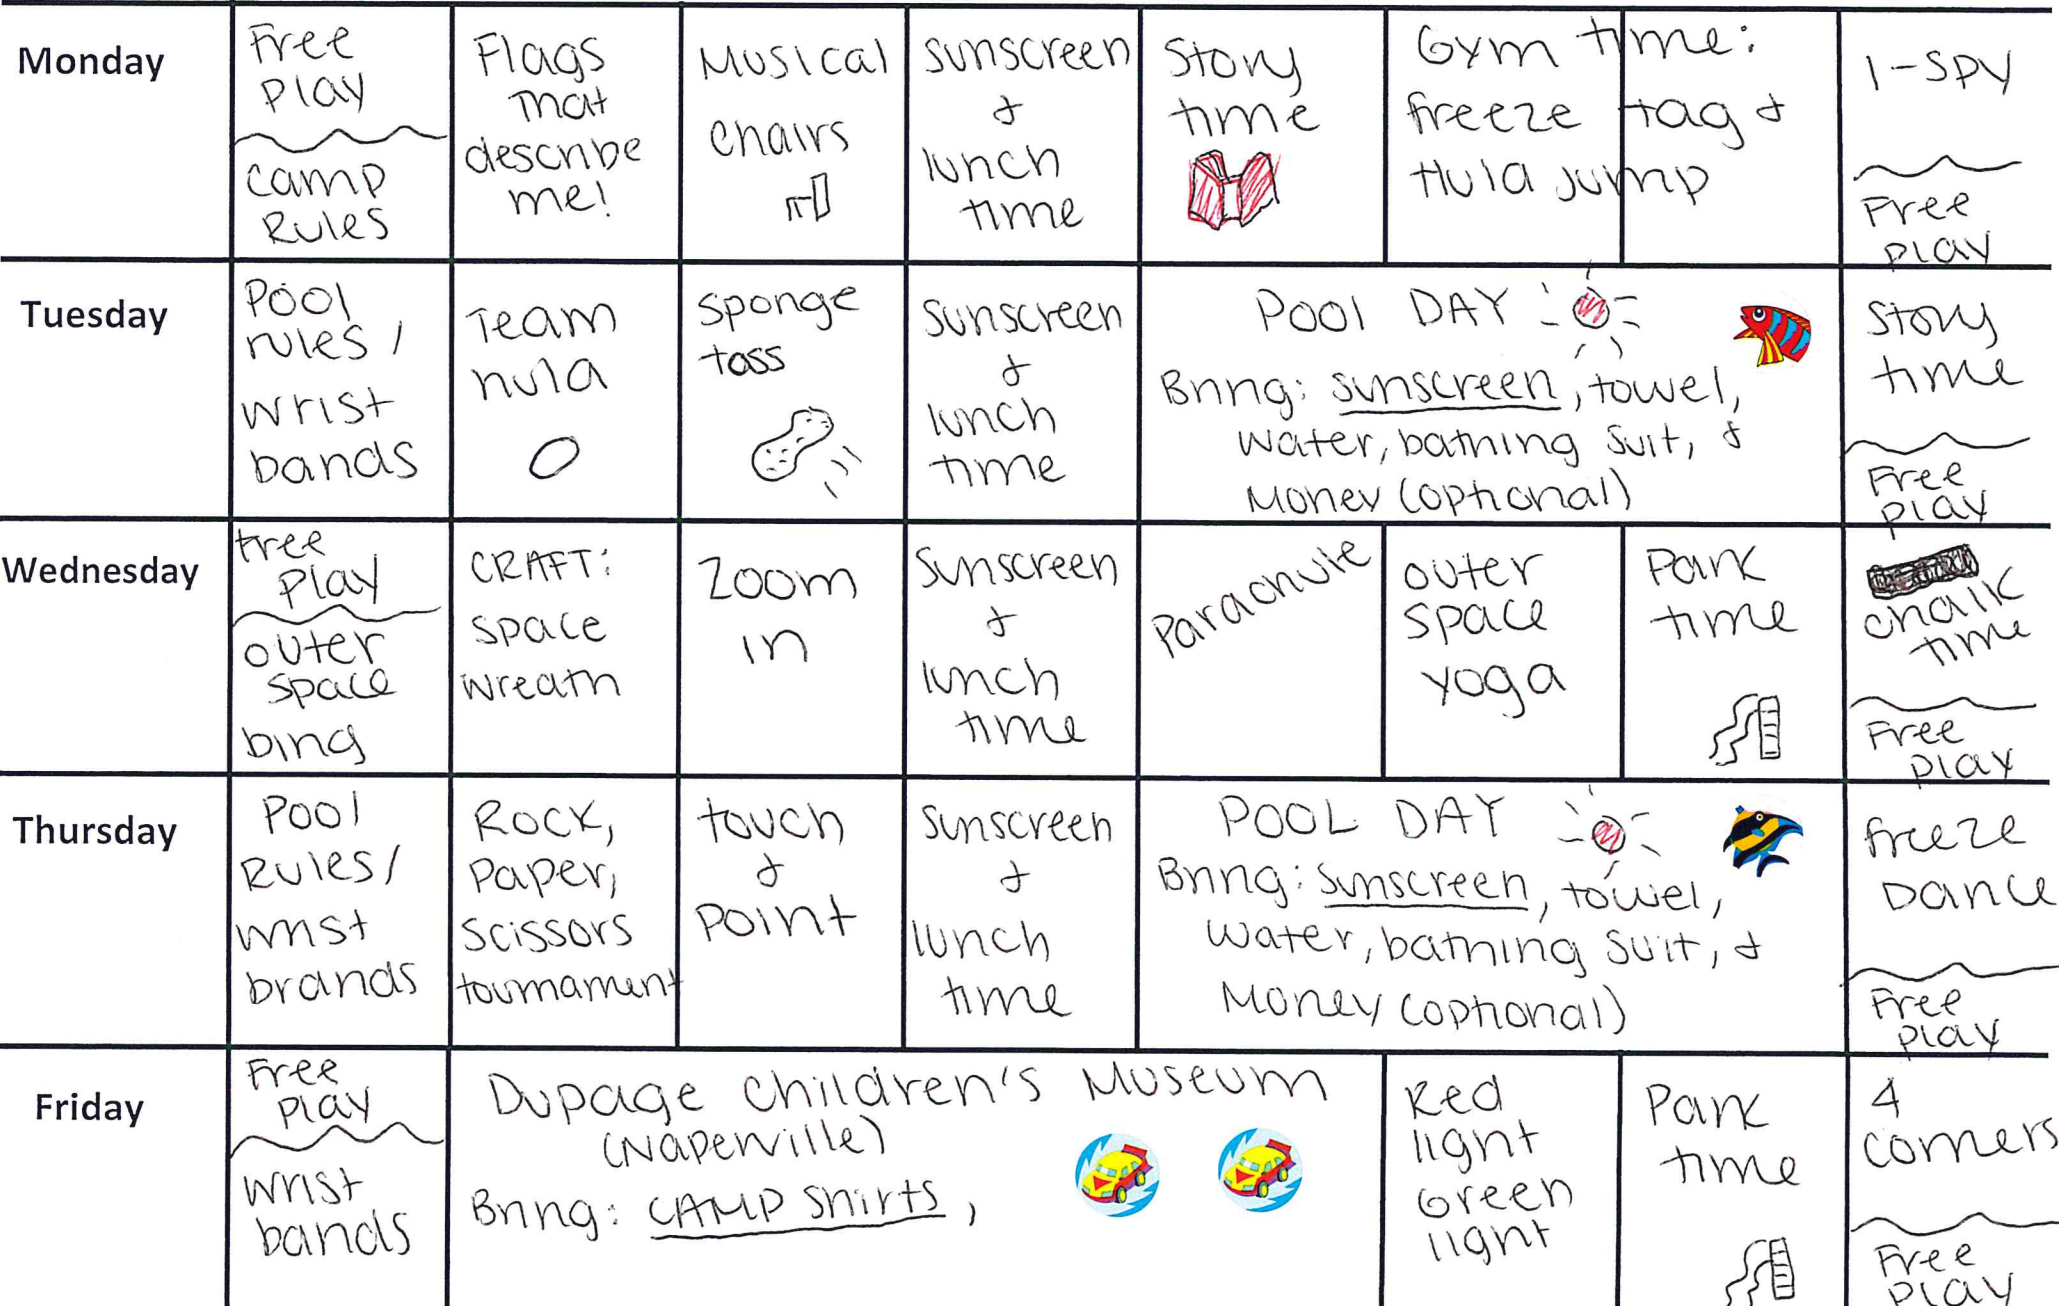 Monday
Free
Play
camp
Rules
Flags
that
describe
me!
Musical
chairs
sunscreen
&
lunch
time
Story
time
Gym time:
freeze tag &
Hula jump
I-SPY
Free
play
Tuesday
Pool
rules /
wrist
bands
Team
hula
sponge
toss
sunscreen
&
lunch
time
POOL DAY
Bring: sunscreen, towel,
water, bathing suit, &
Money (optional)
Story
time
Free
play
Wednesday
free
play
outer
space
bing
CRAFT:
space
wreath
Zoom
in
Sunscreen
&
lunch
time
Parachute
outer
space
yoga
Park
time
chalk
time
Free
play
Thursday
Pool
Rules /
wrist
brands
Rock,
Paper,
Scissors
tournament
touch
&
Point
sunscreen
&
lunch
time
POOL DAY
Bring: Sunscreen, towel,
water, bathing suit, &
Money (optional)
freeze
Dance
Free
play
Friday
Free
play
wrist
bands
Dupage Children's Museum
(Naperville)
Bring: CAMP shirts,
Red
light
Green
light
Park
time
4
corners
Free
play